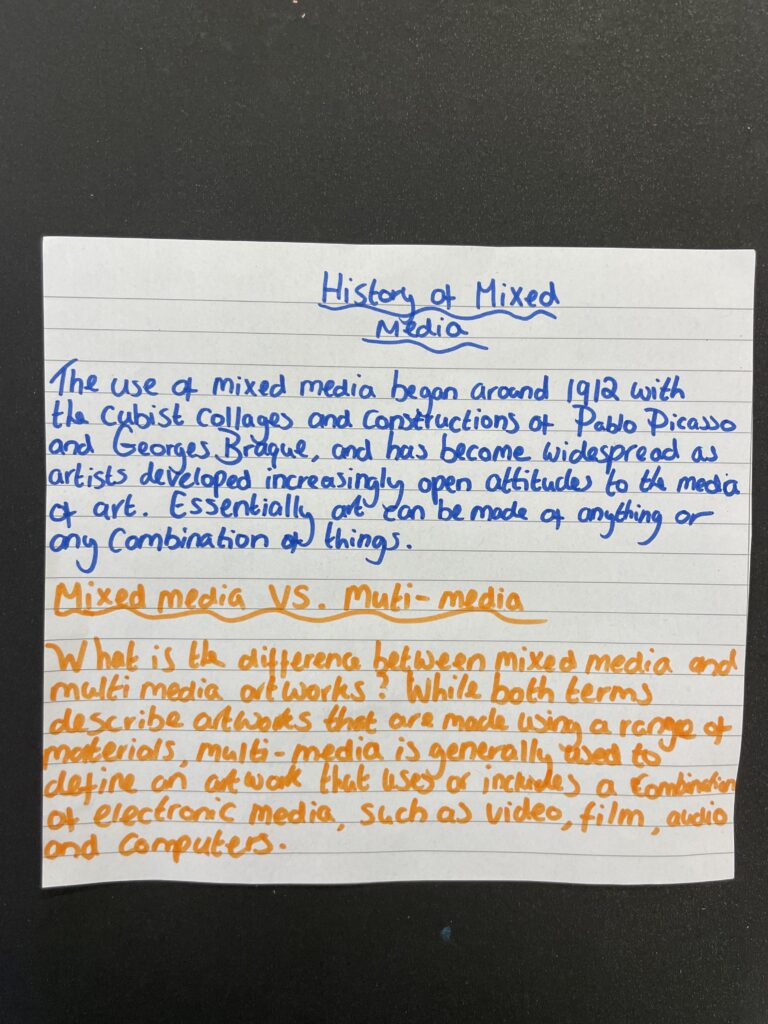 History of Mixed
Media
The use of mixed media began around 1912 with
the cubist collages and constructions of Pablo Picasso
and Georges Braque, and has become widespread as
artists developed increasingly open attitudes to the media
of art. Essentially art can be made of anything or
any combination of things.
Mixed media VS. Muti-media
What is the difference between mixed media and
multi media artworks? While both terms
describe artworks that are made using a range of
materials, multi-media is generally used to
define an artwork that uses or includes a combination
of electronic media, such as video, film, audio
and computers.